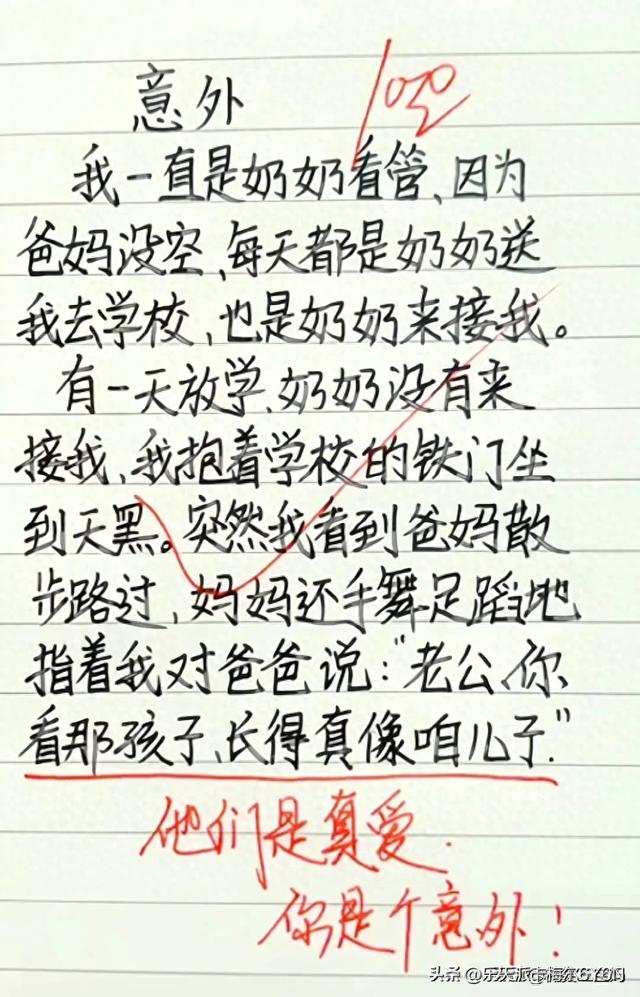 意外
100
我一直是奶奶看管、因为
爸妈没空、每天都是奶奶送
我去学校、也是奶奶来接我。
有一天放学、奶奶没有来
接我、我抱着学校的铁门坐
到天黑。突然我看到爸妈散
步路过、妈妈还手舞足蹈地
指着我对爸爸说:“老公、你
看那孩子、长得真像咱儿子.”
他们是真爱.
你是个意外!
头条